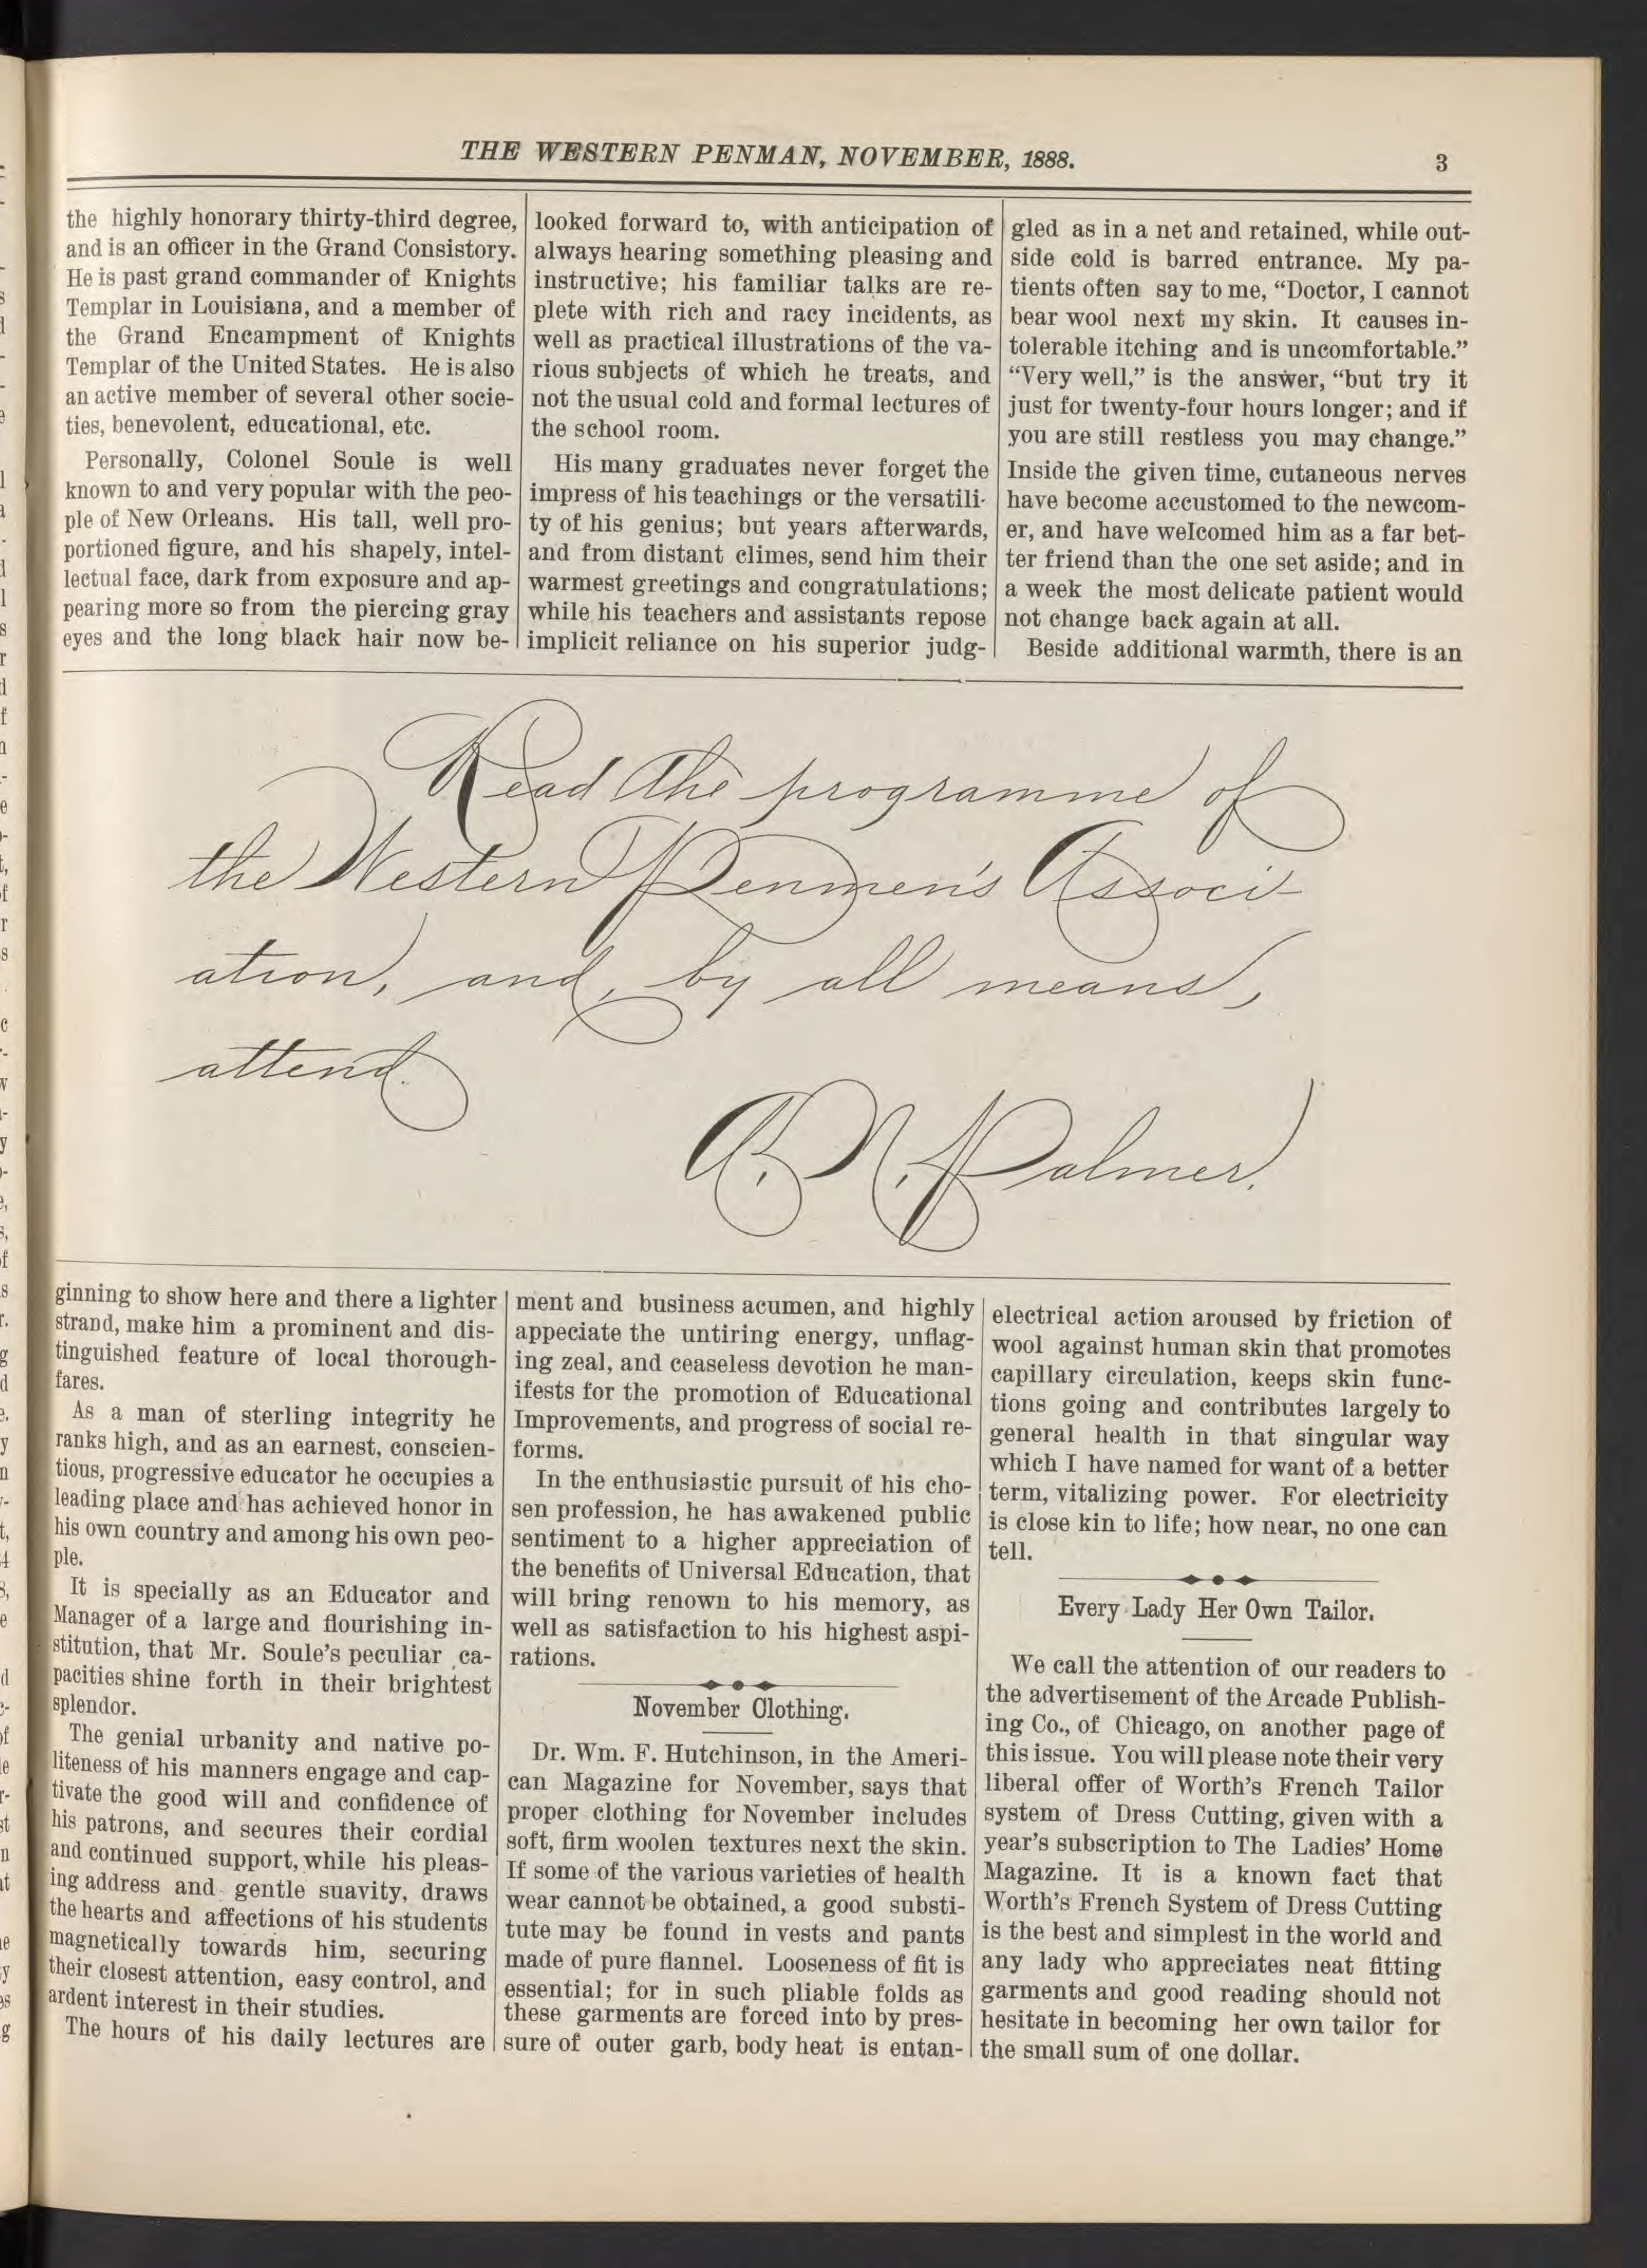 THE WESTERN PENMAN, NOVEMBER, 1888.
3
the highly honorary thirty-third degree,
and is an officer in the Grand Consistory.
He is past grand commander of Knights
Templar in Louisiana, and a member of
the Grand Encampment of Knights
Templar of the United States. He is also
an active member of several other socie-
ties, benevolent, educational, etc.
Personally, Colonel Soule is well
known to and very popular with the peo-
ple of New Orleans. His tall, well pro-
portioned figure, and his shapely, intel-
lectual face, dark from exposure and ap-
pearing more so from the piercing gray
eyes and the long black hair now be-
ginning to show here and there a lighter
strand, make him a prominent and dis-
tinguished feature of local thorough-
fares.
As a man of sterling integrity he
ranks high, and as an earnest, conscien-
tious, progressive educator he occupies a
leading place and has achieved honor in
his own country and among his own peo-
ple.
It is specially as an Educator and
Manager of a large and flourishing in-
stitution, that Mr. Soule's peculiar ca-
pacities shine forth in their brightest
splendor.
The genial urbanity and native po-
liteness of his manners engage and cap-
tivate the good will and confidence of
his patrons, and secures their cordial
and continued support, while his pleas-
ing address and gentle suavity, draws
the hearts and affections of his students
magnetically towards him, securing
their closest attention, easy control, and
ardent interest in their studies.
The hours of his daily lectures are
looked forward to, with anticipation of
always hearing something pleasing and
instructive; his familiar talks are re-
plete with rich and racy incidents, as
well as practical illustrations of the va-
rious subjects of which he treats, and
not the usual cold and formal lectures of
the school room.
His many graduates never forget the
impress of his teachings or the versatili-
ty of his genius; but years afterwards,
and from distant climes, send him their
warmest greetings and congratulations;
while his teachers and assistants repose
implicit reliance on his superior judg-
ment and business acumen, and highly
appeciate the untiring energy, unflag-
ing zeal, and ceaseless devotion he man-
ifests for the promotion of Educational
Improvements, and progress of social re-
forms.
In the enthusiastic pursuit of his cho-
sen profession, he has awakened public
sentiment to a higher appreciation of
the benefits of Universal Education, that
will bring renown to his memory, as
well as satisfaction to his highest aspi-
rations.
November Clothing.
Dr. Wm. F. Hutchinson, in the Ameri-
can Magazine for November, says that
proper clothing for November includes
soft, firm woolen textures next the skin.
If some of the various varieties of health
wear cannot be obtained, a good substi-
tute may be found in vests and pants
made of pure flannel. Looseness of fit is
essential; for in such pliable folds as
these garments are forced into by pres-
sure of outer garb, body heat is entan-
gled as in a net and retained, while out-
side cold is barred entrance. My pa-
tients often say to me, “Doctor, I cannot
bear wool next my skin. It causes in-
tolerable itching and is uncomfortable.”
“Very well,” is the answer, “but try it
just for twenty-four hours longer; and if
you are still restless you may change.”
Inside the given time, cutaneous nerves
have become accustomed to the newcom-
er, and have welcomed him as a far bet-
ter friend than the one set aside; and in
a week the most delicate patient would
not change back again at all.
Beside additional warmth, there is an
electrical action aroused by friction of
wool against human skin that promotes
capillary circulation, keeps skin func-
tions going and contributes largely to
general health in that singular way
which I have named for want of a better
term, vitalizing power. For electricity
is close kin to life; how near, no one can
tell.
Every Lady Her Own Tailor.
We call the attention of our readers to
the advertisement of the Arcade Publish-
ing Co., of Chicago, on another page of
this issue. You will please note their very
liberal offer of Worth's French Tailor
system of Dress Cutting, given with a
year's subscription to The Ladies' Home
Magazine. It is a known fact that
Worth's French System of Dress Cutting
is the best and simplest in the world and
any lady who appreciates neat fitting
garments and good reading should not
hesitate in becoming her own tailor for
the small sum of one dollar.
Read the programme of
the Western Penmen's Associ-
ation, and, by all means,
attend.
A. N. Palmer.